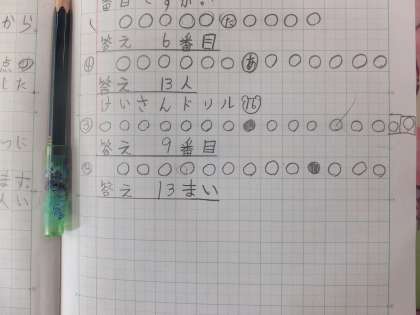 番目ですか。
から
た
答え 6番目
④ あ
点の
した
答え 13人
けいさんドリル 76
③
つに
答え 9番目
⑤
ます。
答え 13まい
い